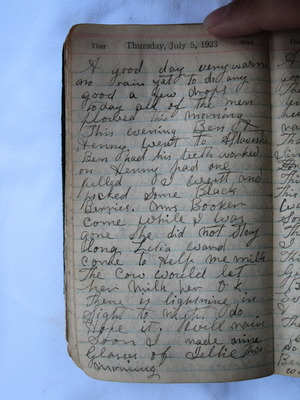 Ther Thursday, July 5, 1923 Wea
A good day very warm
no rain yet to do any
good a few drops
today all of the men
plowed this morning
This evening Ben &
Henny went to
Ben had his teeth worked
on Henny had one
pulled I went and
picked some Black
Berries. Mrs Booker
come while I was
gone she did not stay
long. Zelia Wand
come to help me milk
The Cow would let
her milk her O.K.
There is lightning in
sight to night. I do
Hope it will rain
soon I made nine
Glasses of Jellie this
morning